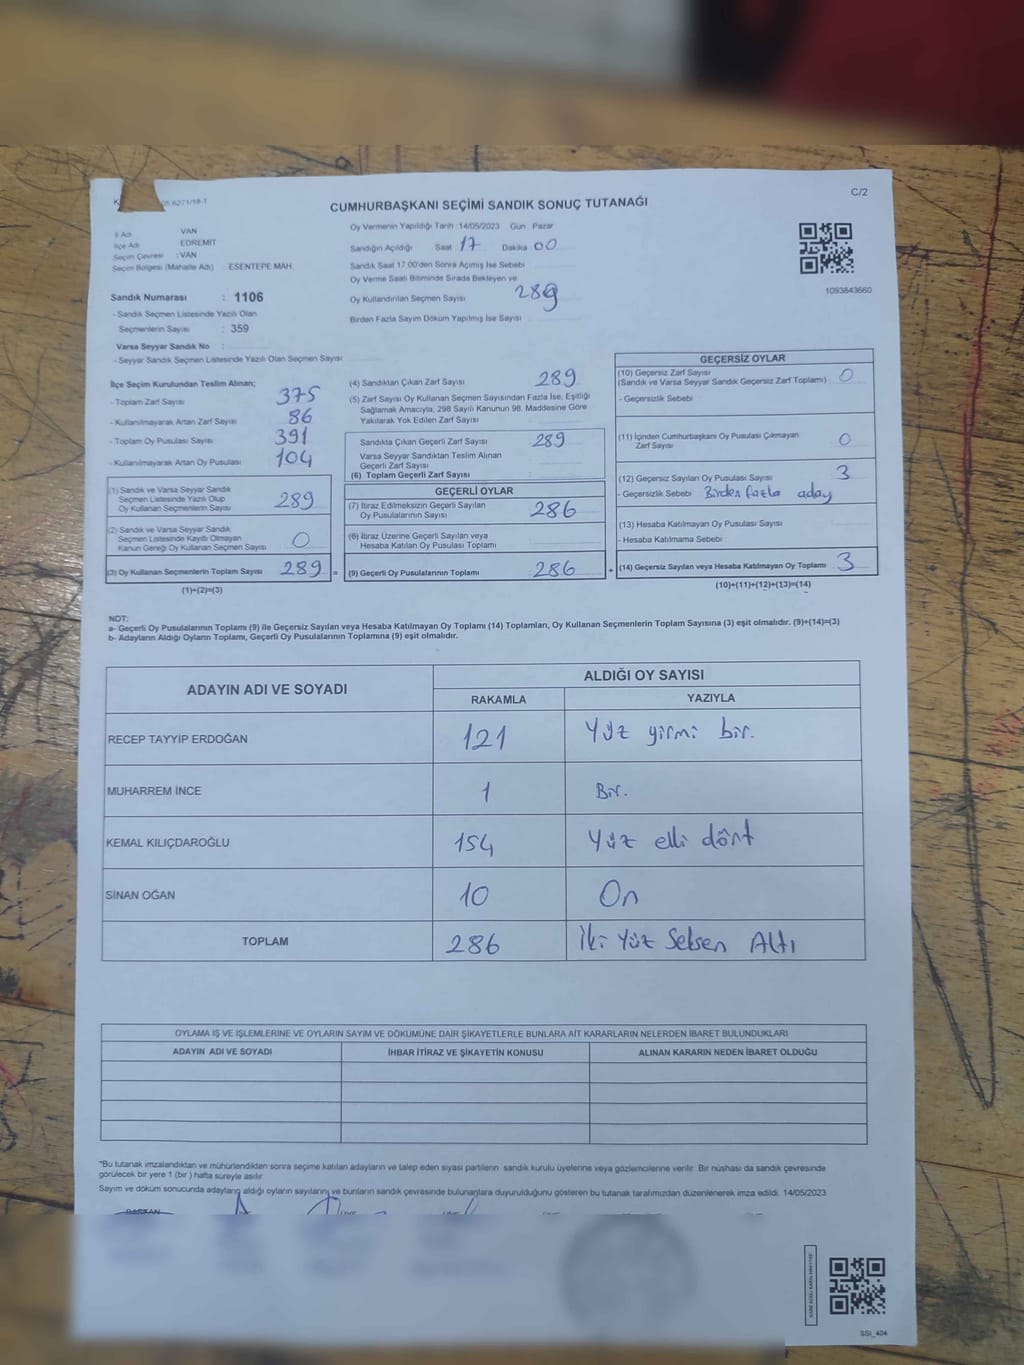 C/2
05.6271/18-1
CUMHURBAŞKANI SEÇİMİ SANDIK SONUÇ TUTANAĞI
İl Adı VAN
İlçe Adı EDREMİT
Seçim Çevresi : VAN
Seçim Bölgesi (Mahalle Adı) ESENTEPE MAH.
Sandık Numarası : 1106
- Sandık Seçmen Listesinde Yazılı Olan
Seçmenlerin Sayısı : 359
Varsa Seyyar Sandık No :
- Seyyar Sandık Seçmen Listesinde Yazılı Olan Seçmen Sayısı
Oy Vermenin Yapıldığı Tarih :14/05/2023 Gün : Pazar
Sandığın Açıldığı Saat 17 Dakika 00
Sandık Saat 17:00'den Sonra Açılmış İse Sebebi
Oy Verme Saati Bitiminde Sırada Bekleyen ve
Oy Kullandırılan Seçmen Sayısı 289
Birden Fazla Sayım Döküm Yapılmış İse Sayısı
1093843660
İlçe Seçim Kurulundan Teslim Alınan;
- Toplam Zarf Sayısı 375
- Kullanılmayarak Artan Zarf Sayısı 86
- Toplam Oy Pusulası Sayısı 391
- Kullanılmayarak Artan Oy Pusulası 104
(1) Sandık ve Varsa Seyyar Sandık
Seçmen Listesinde Yazılı Olup
Oy Kullanan Seçmenlerin Sayısı 289
(2) Sandık ve Varsa Seyyar Sandık
Seçmen Listesinde Kayıtlı Olmayan
Kanun Gereği Oy Kullanan Seçmen Sayısı 0
(3) Oy Kullanan Seçmenlerin Toplam Sayısı 289 =
(1)+(2)=(3)
(4) Sandıktan Çıkan Zarf Sayısı 289
(5) Zarf Sayısı Oy Kullanan Seçmen Sayısından Fazla İse, Eşitliği
Sağlamak Amacıyla, 298 Sayılı Kanunun 98. Maddesine Göre
Yakılarak Yok Edilen Zarf Sayısı
Sandıkta Çıkan Geçerli Zarf Sayısı 289
Varsa Seyyar Sandıktan Teslim Alınan
Geçerli Zarf Sayısı
(6) Toplam Geçerli Zarf Sayısı
GEÇERLİ OYLAR
(7) İtiraz Edilmeksizin Geçerli Sayılan
Oy Pusulalarının Sayısı 286
(8) İtiraz Üzerine Geçerli Sayılan veya
Hesaba Katılan Oy Pusulası Toplamı
(9) Geçerli Oy Pusulalarının Toplamı 286 +
GEÇERSİZ OYLAR
(10) Geçersiz Zarf Sayısı
(Sandık ve Varsa Seyyar Sandık Geçersiz Zarf Toplamı) 0
- Geçersizlik Sebebi
(11) İçinden Cumhurbaşkanı Oy Pusulası Çıkmayan
Zarf Sayısı 0
(12) Geçersiz Sayılan Oy Pusulası Sayısı 3
- Geçersizlik Sebebi Birden fazla aday
(13) Hesaba Katılmayan Oy Pusulası Sayısı
- Hesaba Katılmama Sebebi
(14) Geçersiz Sayılan veya Hesaba Katılmayan Oy Toplamı 3
(10)+(11)+(12)+(13)=(14)
NOT:
a- Geçerli Oy Pusulalarının Toplamı (9) ile Geçersiz Sayılan veya Hesaba Katılmayan Oy Toplamı (14) Toplamları, Oy Kullanan Seçmenlerin Toplam Sayısına (3) eşit olmalıdır. (9)+(14)=(3)
b- Adayların Aldığı Oyların Toplamı, Geçerli Oy Pusulalarının Toplamına (9) eşit olmalıdır.
ADAYIN ADI VE SOYADI
ALDIĞI OY SAYISI
RAKAMLA YAZIYLA
RECEP TAYYİP ERDOĞAN 121 Yüz yirmi bir.
MUHARREM İNCE 1 Bir.
KEMAL KILIÇDAROĞLU 154 Yüz elli dört
SİNAN OĞAN 10 On
TOPLAM 286 İki Yüz Seksen Altı
OYLAMA İŞ VE İŞLEMLERİNE VE OYLARIN SAYIM VE DÖKÜMÜNE DAİR ŞİKAYETLERLE BUNLARA AİT KARARLARIN NELERDEN İBARET BULUNDUKLARI
ADAYIN ADI VE SOYADI İHBAR İTİRAZ VE ŞİKAYETİN KONUSU ALINAN KARARIN NEDEN İBARET OLDUĞU
*Bu tutanak imzalandıktan ve mühürlendikten sonra seçime katılan adayların ve talep eden siyasi partilerin sandık kurulu üyelerine veya gözlemcilerine verilir. Bir nüshası da sandık çevresinde
görülecek bir yere 1 (bir) hafta süreyle asılır.
Sayım ve döküm sonucunda adayların aldığı oyların sayılarını ve bunların sandık çevresinde bulunanlara duyurulduğunu gösteren bu tutanak tarafımızdan düzenlenerek imza edildi. 14/05/2023
BAŞKAN
SSI_404